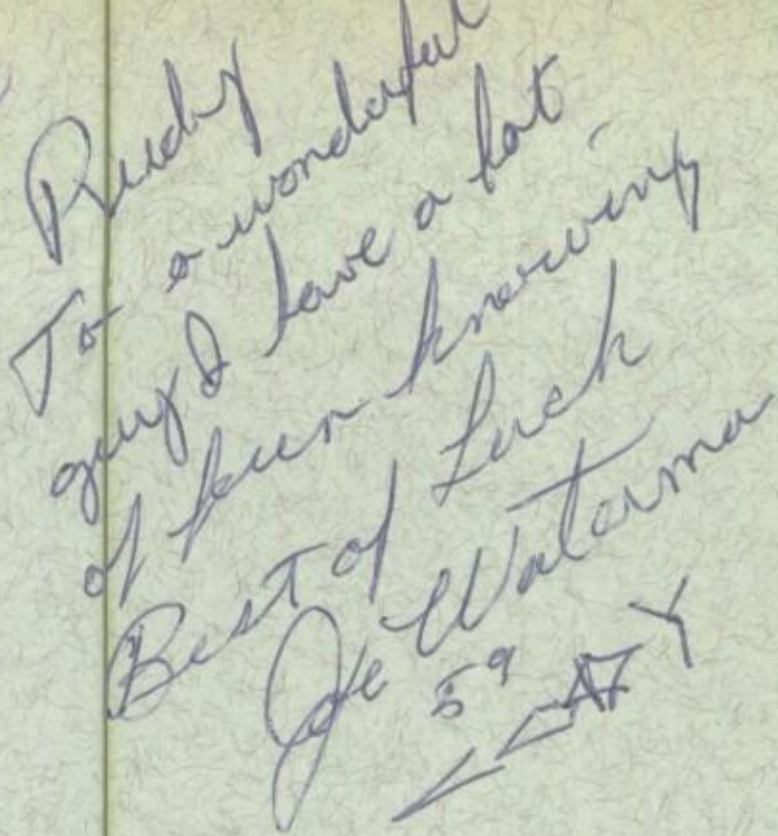 Rudy
To a wonderful
guy I have a lot
of fun knowing
Best of Luck
Joe Waterma
59